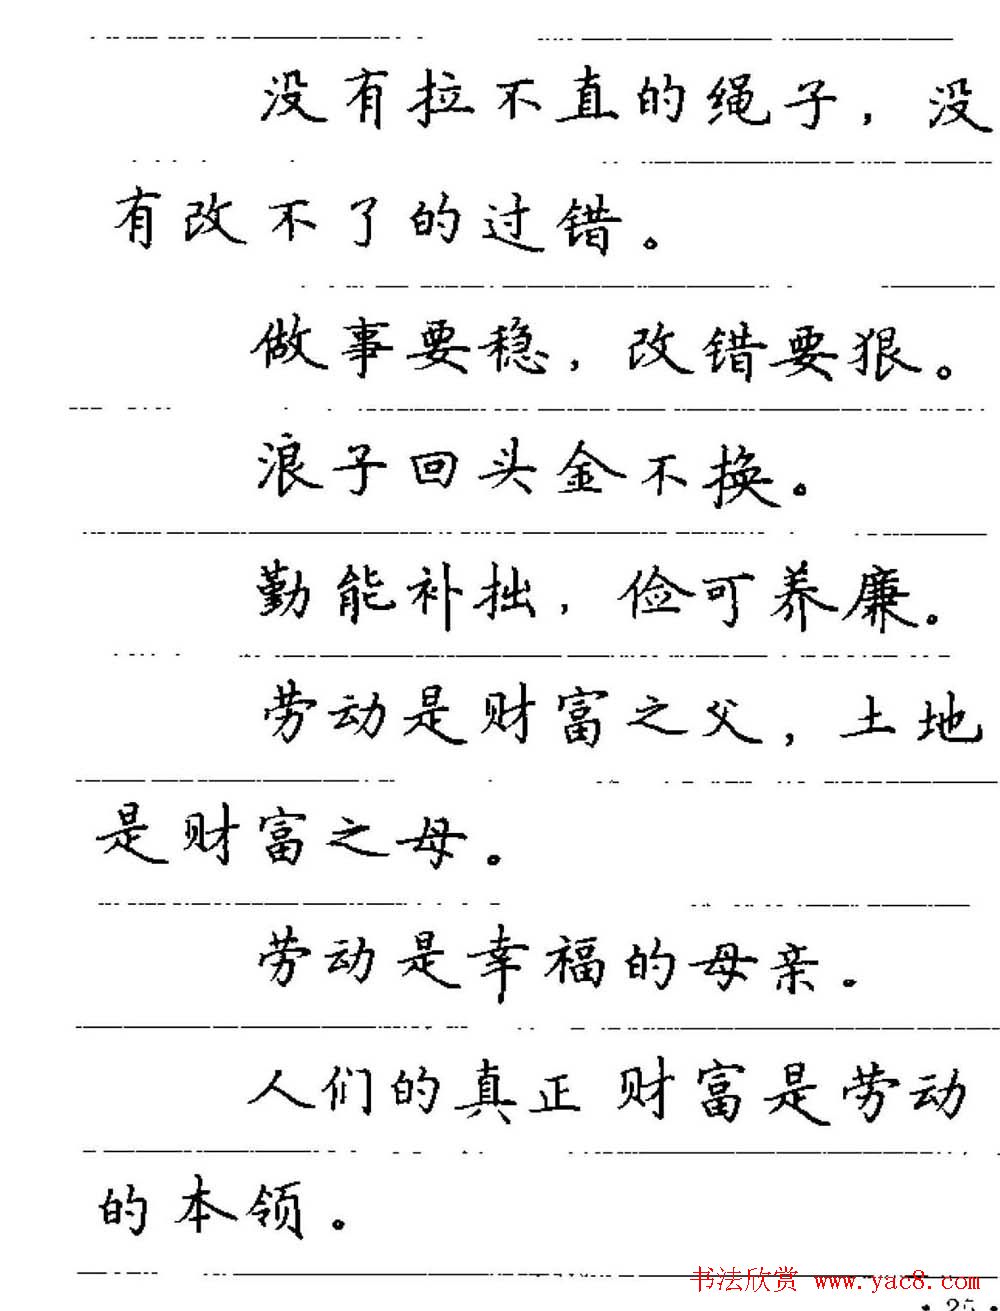 没有拉不直的绳子，没
有改不了的过错。
做事要稳，改错要狠。
浪子回头金不换。
勤能补拙，俭可养廉。
劳动是财富之父，土地
是财富之母。
劳动是幸福的母亲。
人们的真正财富是劳动
的本领。
书法欣赏 www.yac8.com
· 25 ·